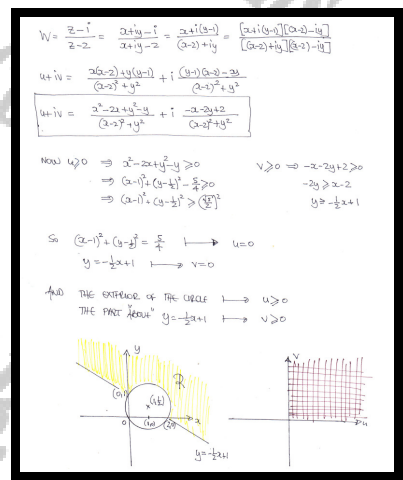 W = \frac{z-i}{z-2} = \frac{x+iy-i}{x+iy-2} = \frac{x+i(y-1)}{(x-2)+iy} = \frac{[x+i(y-1)][(x-2)-iy]}{[(x-2)+iy][(x-2)-iy]}
u+iv = \frac{x(x-2)+y(y-1)}{(x-2)^2+y^2} + i \frac{(y-1)(x-2)-xy}{(x-2)^2+y^2}
u+iv = \frac{x^2-2x+y^2-y}{(x-2)^2+y^2} + i \frac{-x-2y+2}{(x-2)^2+y^2}
NOW u≥0 ⇒ x²-2x+y²-y≥0
⇒ (x-1)²+(y-½)²-\frac{5}{4}≥0
⇒ (x-1)²+(y-½)²≥(\frac{√5}{2})²
V≥0 ⇒ -x-2y+2≥0
-2y≥x-2
y≤-½x+1
So (x-1)²+(y-½)²=\frac{5}{4} ↦ u=0
y=-½x+1 ↦ v=0
AND THE EXTERIOR OF THE CIRCLE ↦ u≥0
THE PART "ABOVE" y=-½x+1 ↦ V≥0
y
R
(0,1)
(1,½)
x
O
(1,0)
(2,0)
y=-½x+1
V
u